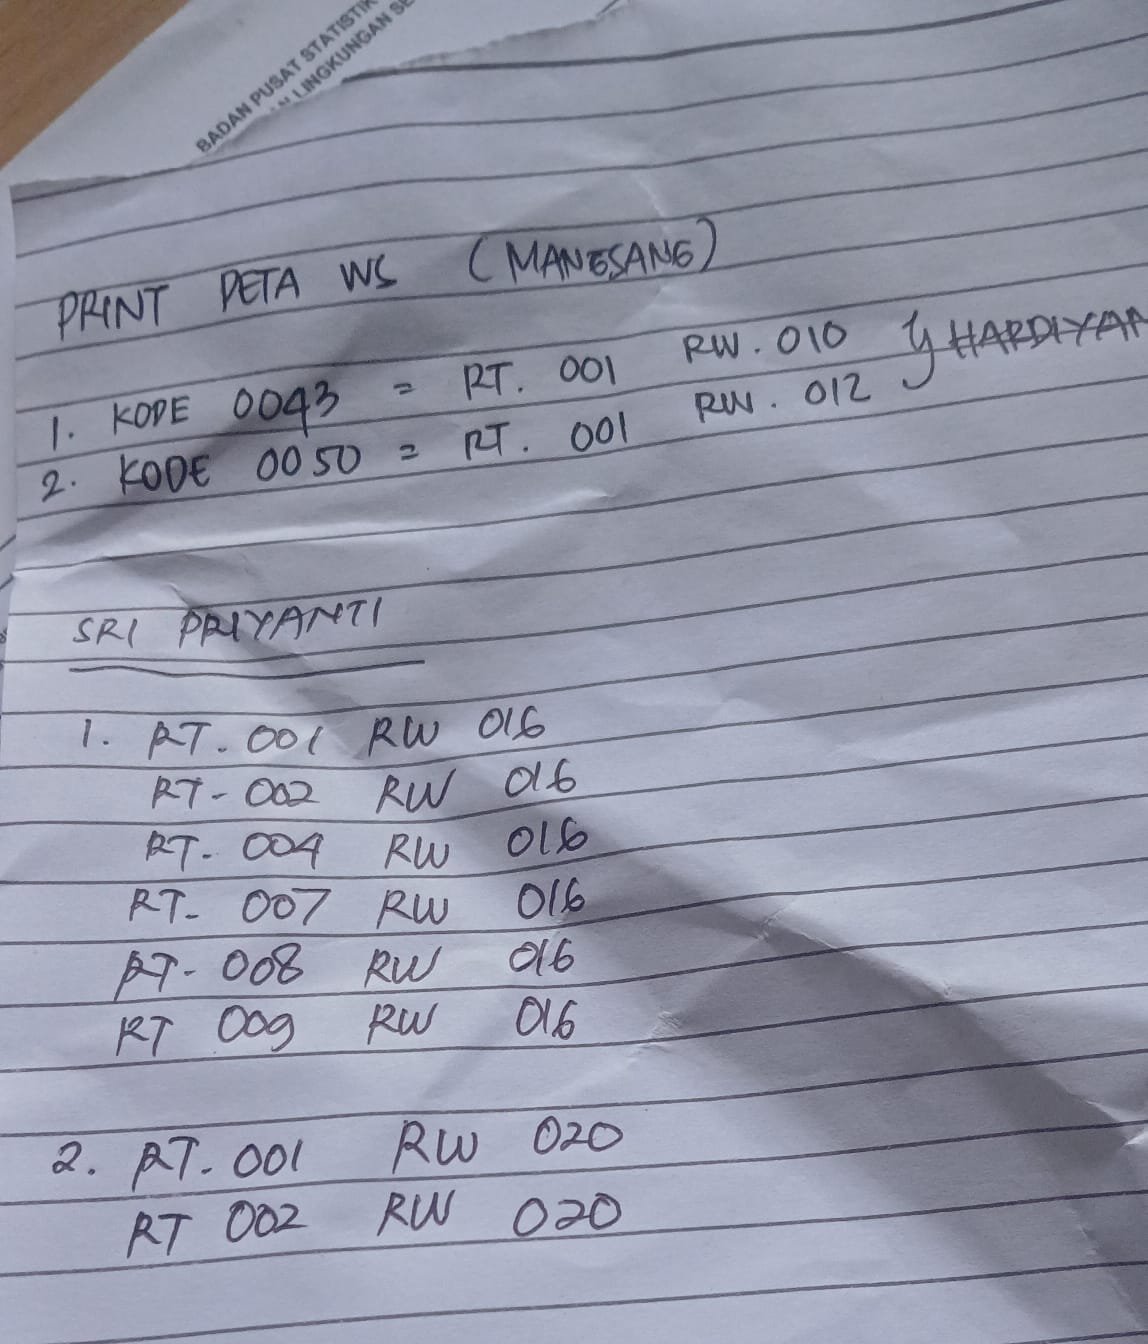 BADAN PUSAT STATISTIK
LINGKUNGAN
PRINT PETA WS (MANGSANG)
1. KODE 0043 = RT. 001 RW. 010 } HARDIYAN
2. KODE 0050 = RT. 001 RW. 012
SRI PRIYANTI
1. RT. 001 RW 016
RT- 002 RW 016
RT- 004 RW 016
RT- 007 RW 016
RT- 008 RW 016
RT 009 RW 016
2. RT. 001 RW 020
RT 002 RW 020